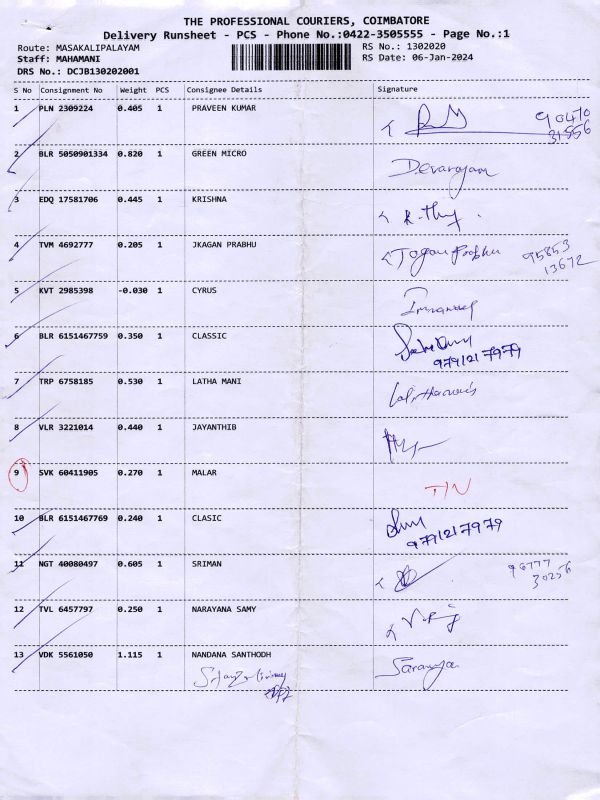 THE PROFESSIONAL COURIERS, COIMBATORE
Delivery Runsheet - PCS - Phone No.:0422-3505555 - Page No.:1
Route: MASAKALIPALAYAM
RS No.: 1302020
Staff: MAHAMANI
RS Date: 06-Jan-2024
DRS No.: DCJB130202001
S No Consignment No Weight PCS Consignee Details Signature
1 PLN 2309224 0.405 1 PRAVEEN KUMAR 90470
31556
2 BLR 5050901334 0.820 1 GREEN MICRO Devarajan
3 EDQ 17581706 0.445 1 KRISHNA
4 TVM 4692777 0.205 1 JKAGAN PRABHU Jogan Prabhu 95853
13672
5 KVT 2985398 -0.030 1 CYRUS Immanuel
6 BLR 6151467759 0.350 1 CLASSIC
9791217979
7 TRP 6758185 0.530 1 LATHA MANI
8 VLR 3221014 0.440 1 JAYANTHIB
9 SVK 60411905 0.270 1 MALAR T/N
10 BLR 6151467769 0.240 1 CLASIC
9791217979
11 NGT 40080497 0.605 1 SRIMAN 96777
30256
12 TVL 6457797 0.250 1 NARAYANA SAMY
13 VDK 5561050 1.115 1 NANDANA SANTHODH Saranya